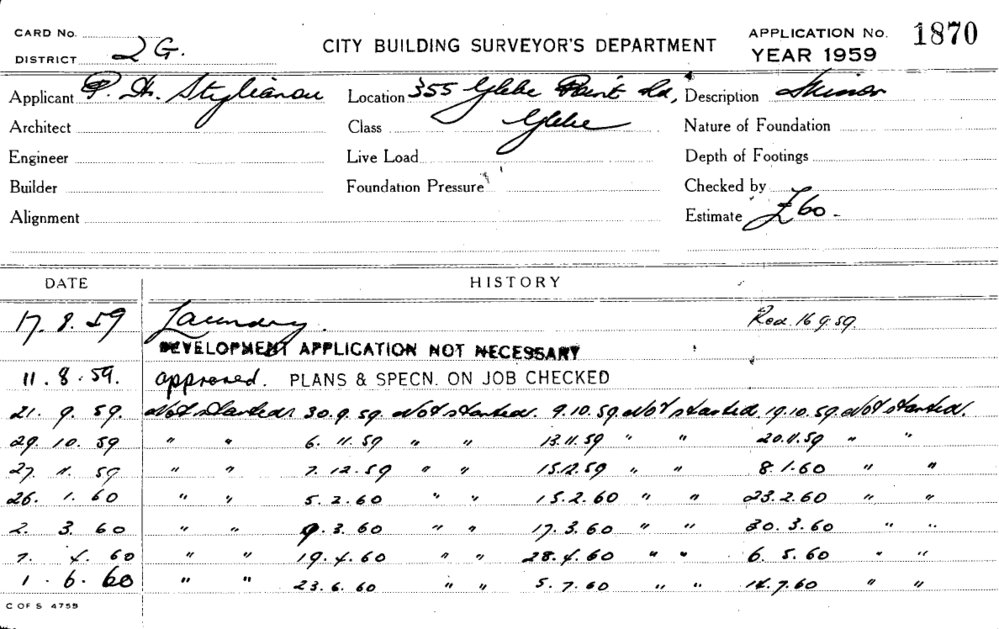 CARD No.
DISTRICT 2 G.
CITY BUILDING SURVEYOR'S DEPARTMENT
APPLICATION No. 1870
YEAR 1959
Applicant P. H. Stylianou Location 355 Glebe Point Rd, Description Minor
Architect Class Glebe Nature of Foundation
Engineer Live Load Depth of Footings
Builder Foundation Pressure Checked by
Alignment Estimate £60 -
DATE HISTORY
17. 9. 59 Laundry. Rec. 16 9. 59.
DEVELOPMENT APPLICATION NOT NECESSARY
11. 8. 59. approved. PLANS & SPECN. ON JOB CHECKED
21. 9. 59. Not started. 30.9.59. Not started. 9.10.59. Not started. 19.10.59. Not started.
29. 10. 59 " " 6. 11. 59 " " 13.11.59 " " 20.11.59 " "
27. 11. 59 " " 7. 12. 59 " " 15.12.59 " " 8.1.60 " "
26. 1. 60 " " 5. 2. 60 " " 15. 2. 60 " " 23.2.60 " "
2. 3. 60 " " 9. 3. 60 " " 17. 3. 60 " " 30. 3. 60 " "
7. 4. 60 " " 19. 4. 60 " " 28. 4. 60 " " 6. 5. 60 " "
1. 6. 60 " " 23. 6. 60 " " 5. 7. 60 " " 14. 7. 60 " "
C OF S 4759